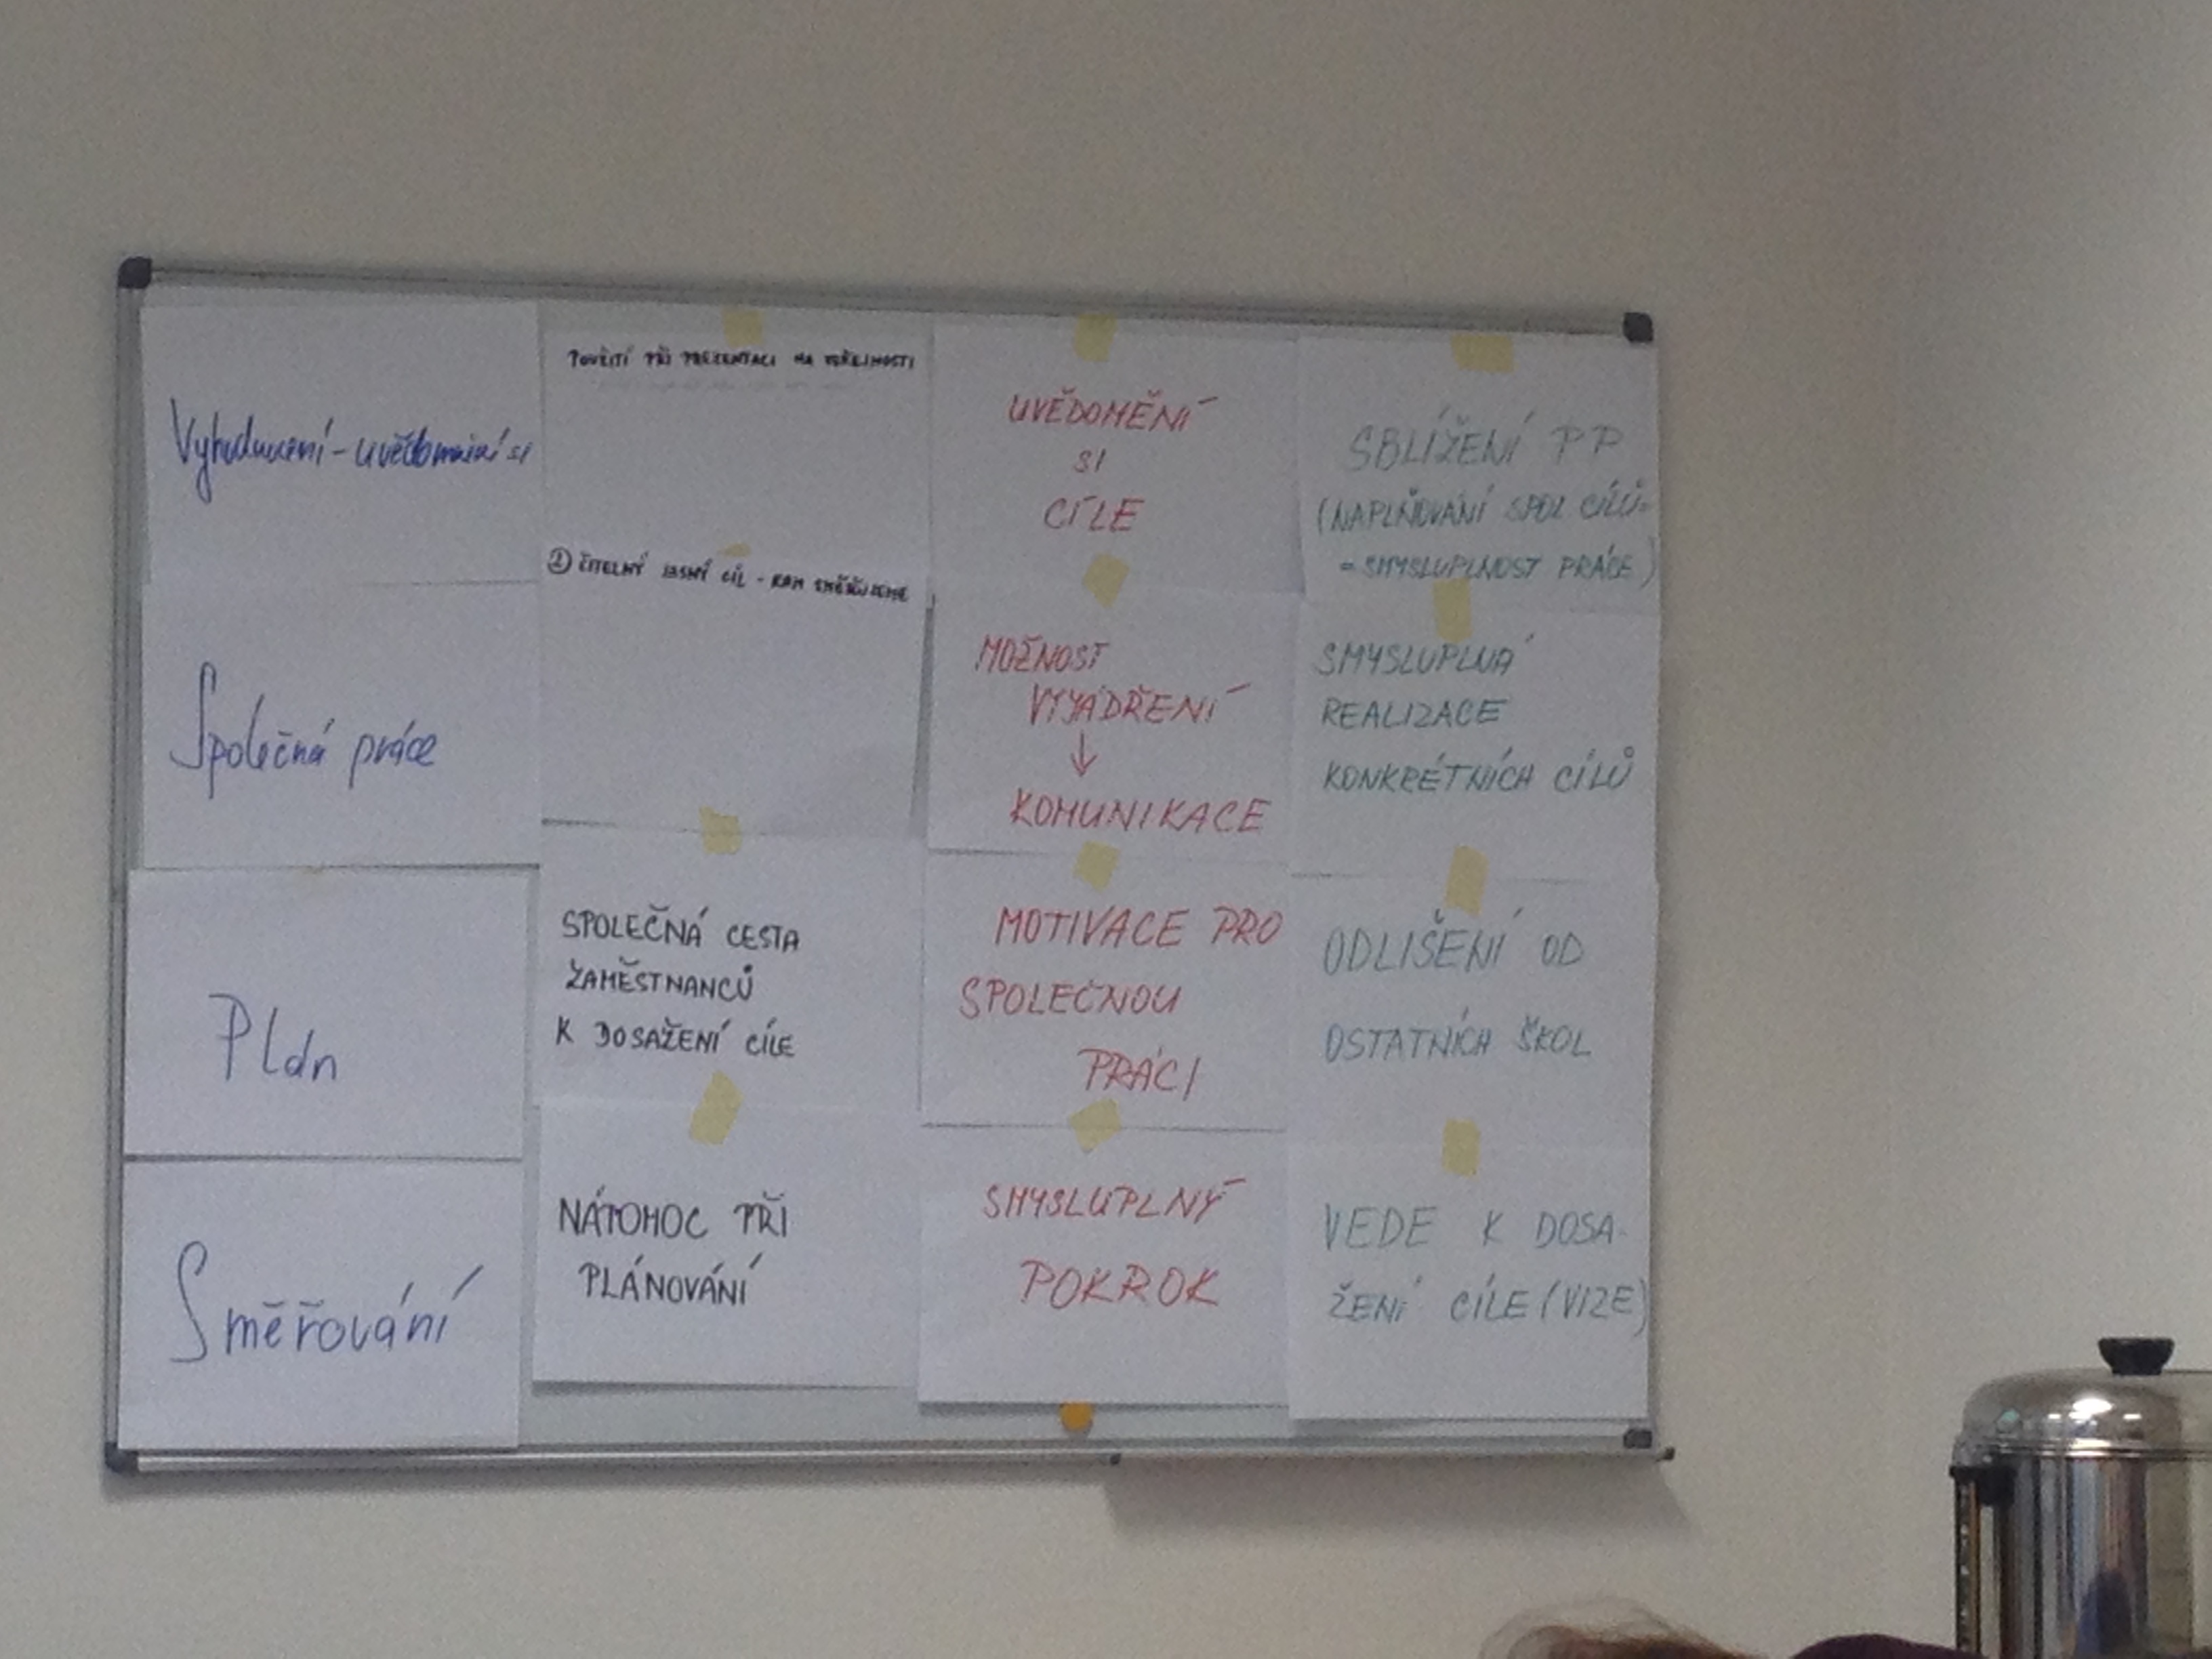 Vyhodnocení - uvědomění si
Společná práce
Plán
Směřování
POUŽITÍ PŘI PREZENTACI NA VEŘEJNOSTI
① ČITELNÝ JASNÝ CÍL - KAM SMĚŘUJEME
SPOLEČNÁ CESTA
ZAMĚSTNANCŮ
K DOSAŽENÍ CÍLE
NÁPOMOC PŘI
PLÁNOVÁNÍ
UVĚDOMĚNÍ
SI
CÍLE
MOŽNOST
VYJÁDŘENÍ
↓
KOMUNIKACE
MOTIVACE PRO
SPOLEČNOU
PRÁCI
SMYSLUPLNÝ
POKROK
SBLÍŽENÍ PP
(NAPLŇOVÁNÍ SPOL CÍLŮ=
= SMYSLUPLNOST PRÁCE)
SMYSLUPLNÁ
REALIZACE
KONKRÉTNÍCH CÍLŮ
ODLIŠENÍ OD
OSTATNÍCH ŠKOL
VEDE K DOSA-
ŽENÍ CÍLE (VIZE)